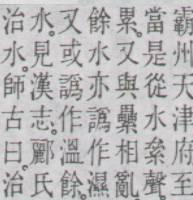 霸州天津府至
當是從水絫聲
累。又與纍相亂
餘水亦譌作濕
又或譌作溫餘
水。見漢志。酈氏
治水。師古曰治